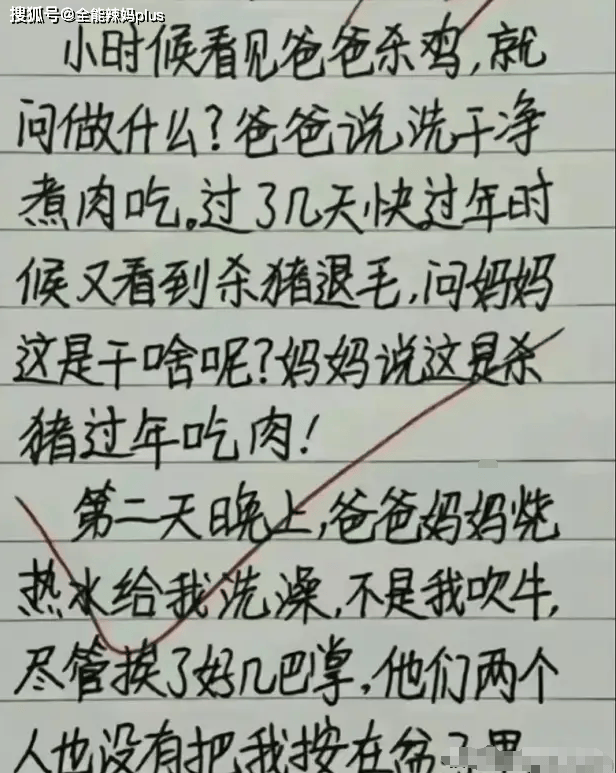 搜狐号@全能辣妈plus
小时候看见爸爸杀鸡,就
问做什么?爸爸说洗干净
煮肉吃。过了几天快过年时
候又看到杀猪退毛,问妈妈
这是干啥呢?妈妈说这是杀
猪过年吃肉!
第二天晚上,爸爸妈妈烧
热水给我洗澡,不是我吹牛,
尽管挨了好几巴掌,他们两个
人也没有把我按在盆子里